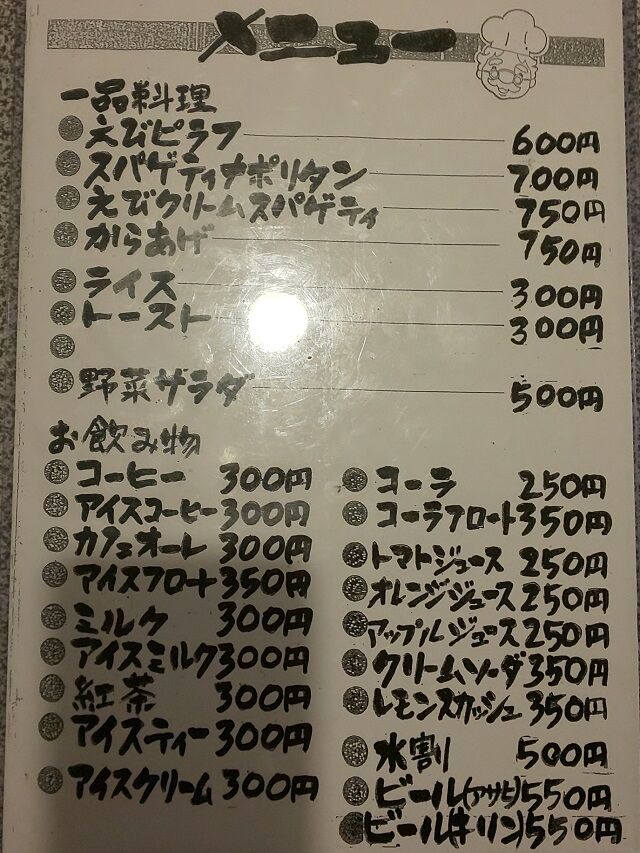 メニュー
一品料理
えびピラフ 600円
スパゲティナポリタン 700円
えびクリームスパゲティ 750円
からあげ 750円
ライス 300円
トースト 300円
野菜サラダ 500円
お飲み物
コーヒー 300円
アイスコーヒー 300円
カフェオーレ 300円
アイスフロート 350円
ミルク 300円
アイスミルク 300円
紅茶 300円
アイスティー 300円
アイスクリーム 300円
コーラ 250円
コーラフロート 350円
トマトジュース 250円
オレンジジュース 250円
アップルジュース 250円
クリームソーダ 350円
レモンスカッシュ 350円
水割 500円
ビール(アサヒ) 550円
ビール(キリン) 550円